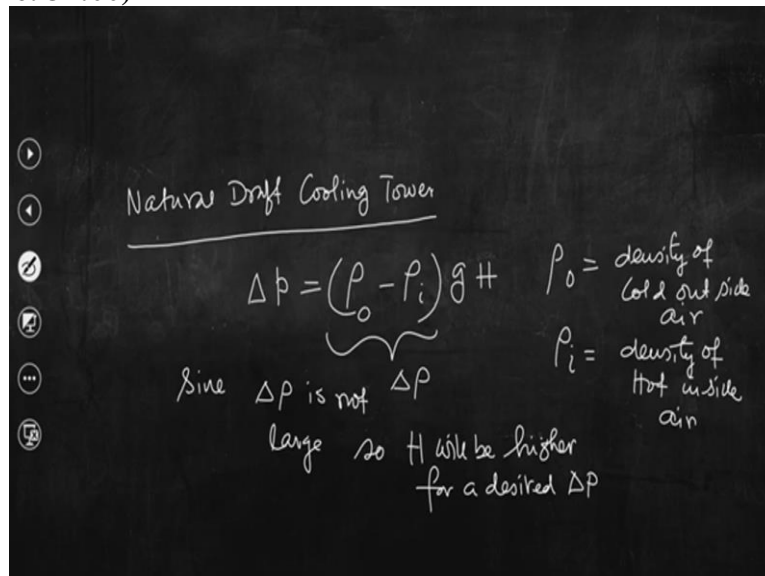 Natural Draft Cooling Tower
Δp = (ρ₀ - ρᵢ) g H
Δρ
ρ₀ = density of
Cold out side
air
ρᵢ = density of
Hot inside
air
Sine Δρ is not
large so H will be higher
for a desired Δp